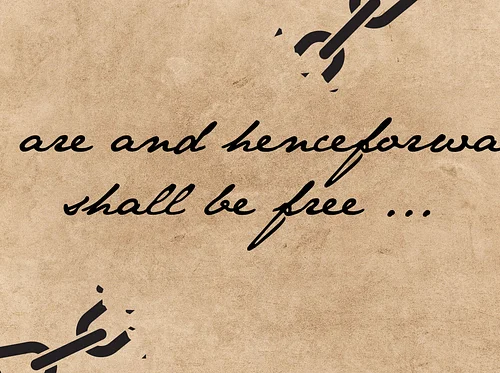 are and henceforwa
shall be free ...